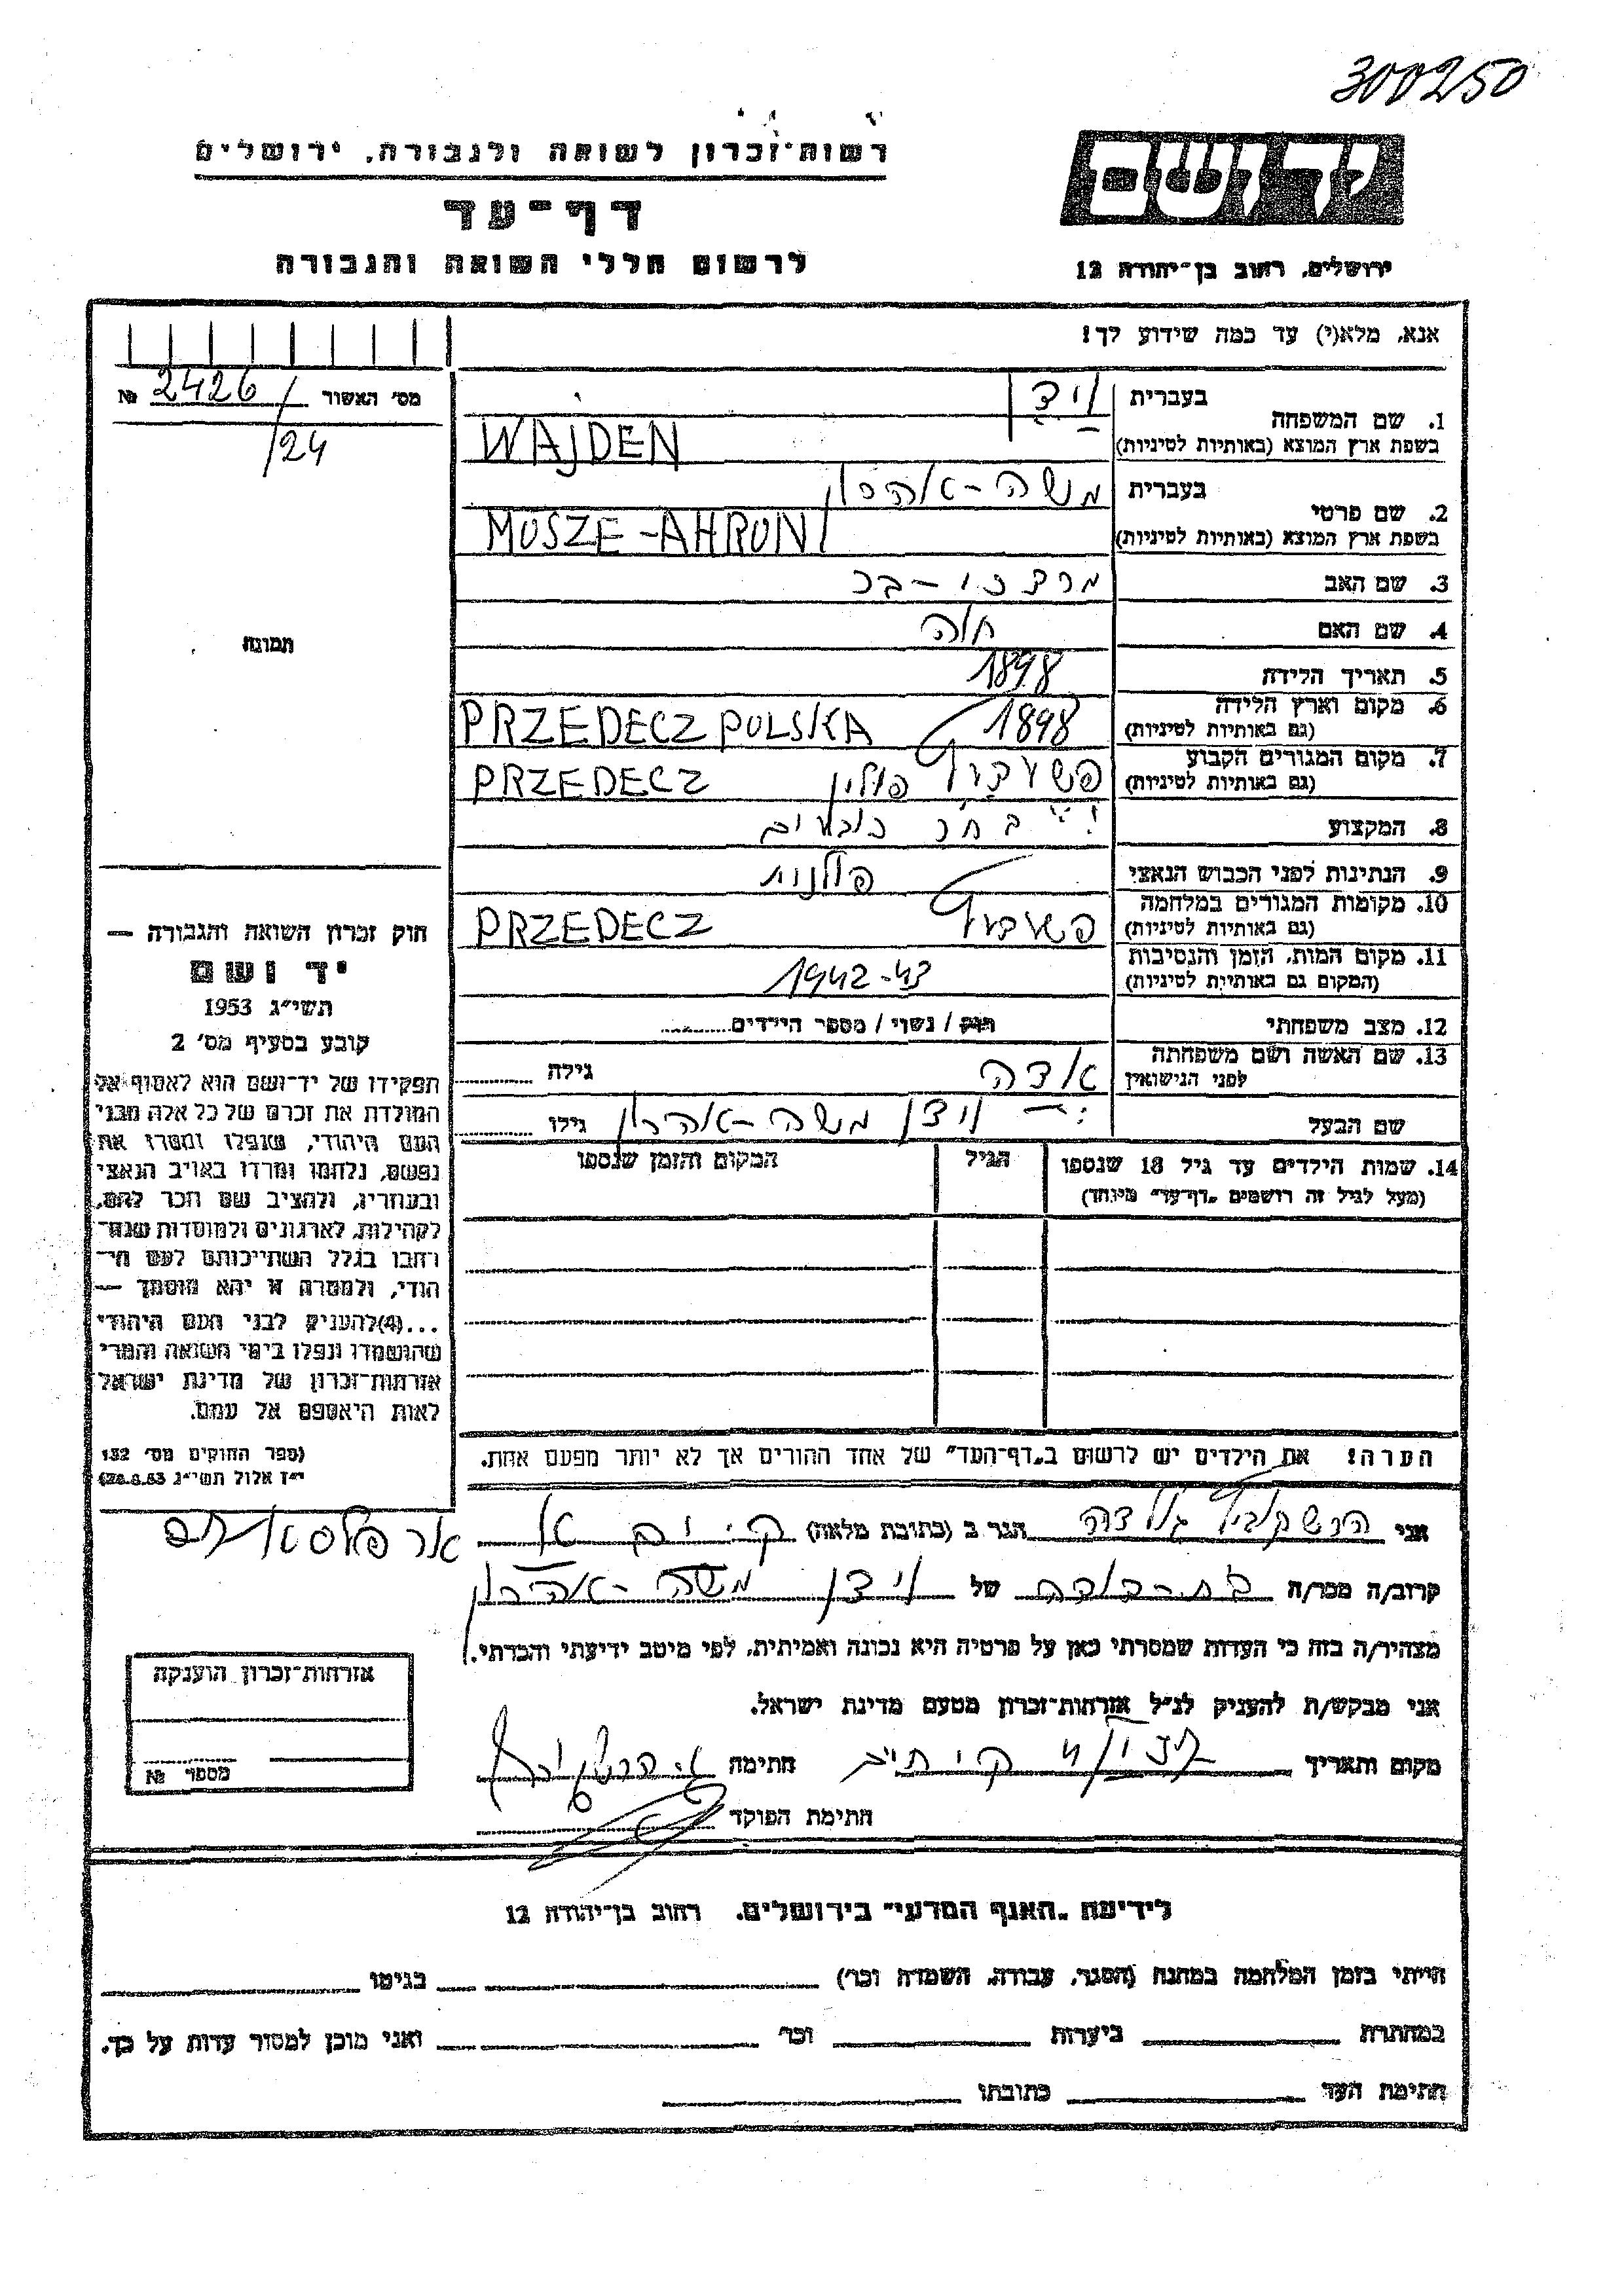 300250
רשות־זכרון לשואה ולגבורה, ירושלים
יד ושם
דף־עד
לרשום חללי השואה והגבורה
ירושלים, רחוב בן־יהודה 12
אנא, מלא(י) עד כמה שידוע לך!
מס׳ האשור 2426/ №
/24
1. שם המשפחה
בעברית וידן
בשפת ארץ המוצא (באותיות לטיניות) WAJDEN
2. שם פרטי
בעברית משה-אהרון
בשפת ארץ המוצא (באותיות לטיניות) MOSZE-AHRON
3. שם האב
4. שם האם חוה
5. תאריך הלידה 1898
6. מקום וארץ הלידה 1898 PRZEDECZ POLSKA
(גם באותיות לטיניות)
7. מקום המגורים הקבוע פולין PRZEDECZ
(גם באותיות לטיניות)
8. המקצוע
9. הנתינות לפני הכבוש הנאצי פולנית
10. מקומות המגורים במלחמה PRZEDECZ
(גם באותיות לטיניות)
11. מקום המות, הזמן והנסיבות 1942-43
(המקום גם באותיות לטיניות)
12. מצב משפחתי רווק / נשוי / מספר הילדים
13. שם האשה ושם משפחתה גילה
לפני הנישואין
שם הבעל וידן משה-אהרון גילו
14. שמות הילדים עד גיל 18 שנספו הגיל המקום והזמן שנספו
(מעל לגיל זה רושמים „דף־עד״ מיוחד)
הערה! את הילדים יש לרשום ב„דף־העד״ של אחד ההורים אך לא יותר מפעם אחת.
תמונה
חוק זכרון השואה והגבורה —
יד ושם
תשי״ג 1953
קובע בסעיף מס׳ 2
תפקידו של יד־ושם הוא לאסוף אל
המולדת את זכרם של כל אלה מבני
העם היהודי, שנפלו ומסרו את
נפשם, נלחמו ומרדו באויב הנאצי
ובעוזריו, ולהציב שם וזכר להם,
לקהילות, לארגונים ולמוסדות שנח־
רבו בגלל השתייכותם לעם הי־
הודי, ולמטרה זו יהא מוסמך —
...(4)להעניק לבני העם היהודי
שהושמדו ונפלו בימי השואה והמרי
אזרחות־זכרון של מדינת ישראל
לאות היאספם אל עמם.
(ספר החוקים מס׳ 132
י״ז אלול תשי״ג 28.8.53)
אני הגר ב (כתובת מלאה) ק. ים
קרוב/ה מכר/ה בת-דודה של וידן משה-אהרון
מצהיר/ה בזה כי העדות שמסרתי כאן על פרטיה היא נכונה ואמיתית, לפי מיטב ידיעתי והכרתי.
אני מבקש/ת להעניק לנ״ל אזרחות־זכרון מטעם מדינת ישראל.
מקום ותאריך חתימה
חתימת הפוקד
אזרחות־זכרון הוענקה
מספר №
לידיעת „האגף המדעי״ בירושלים, רחוב בן־יהודה 12
הייתי בזמן המלחמה במחנה (הסגר, עבודה, השמדה וכו׳) בגיטו
במחתרת ביערות וכו׳ ואני מוכן למסור עדות על כך.
חתימת העד כתובתו